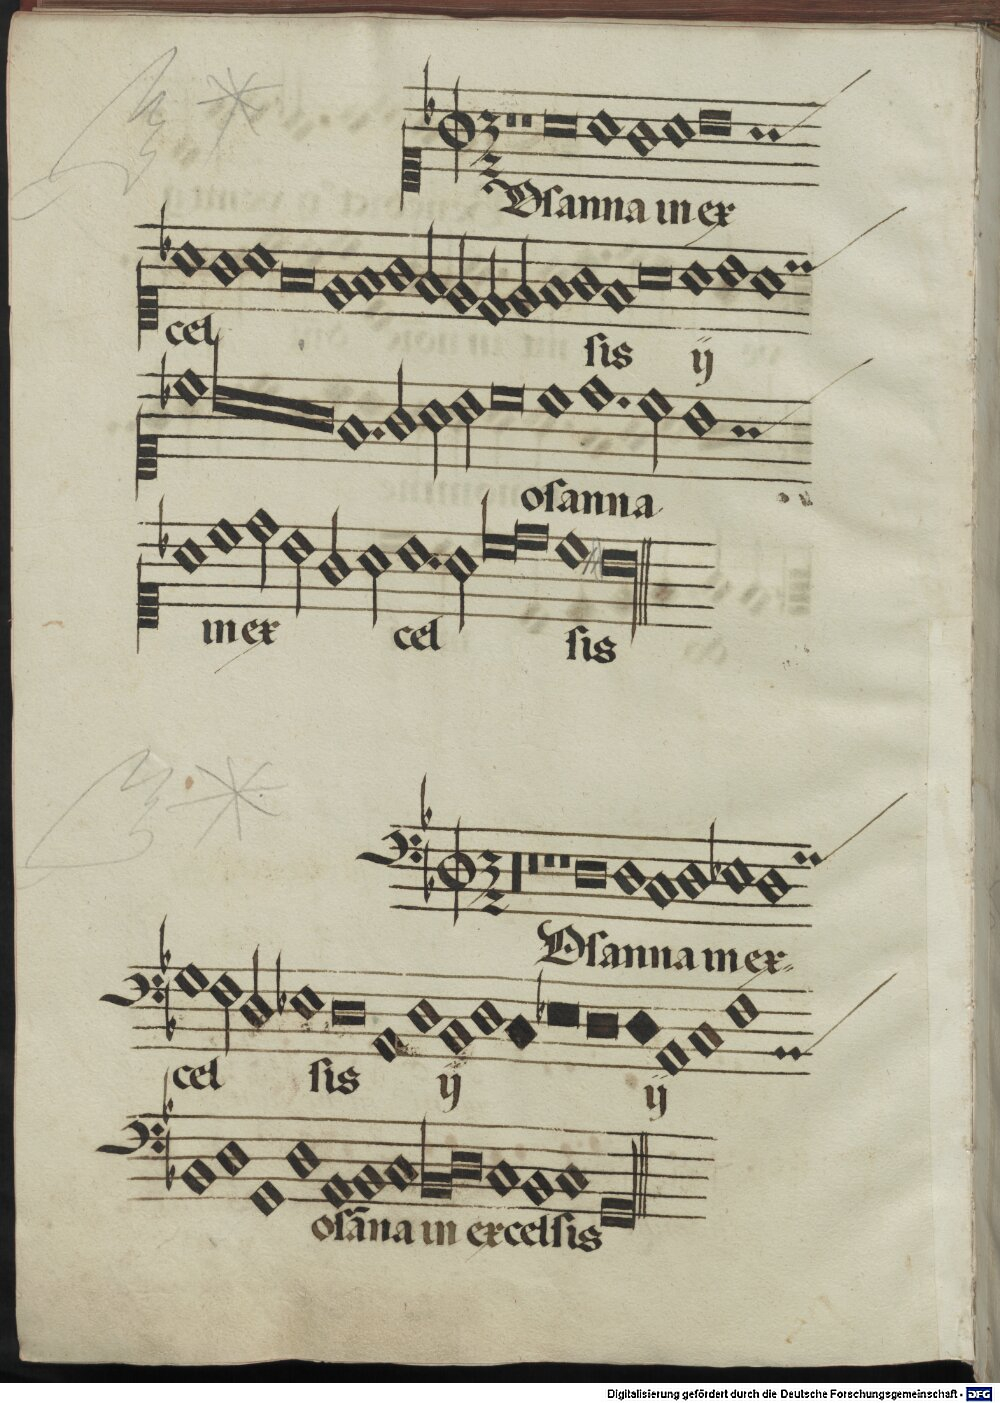 Osanna in ex
cel sis ij
osanna
in ex cel sis
Osanna in ex-
cel sis ij ij
osāna in excelsis
Digitalisierung gefördert durch die Deutsche Forschungsgemeinschaft - DFG